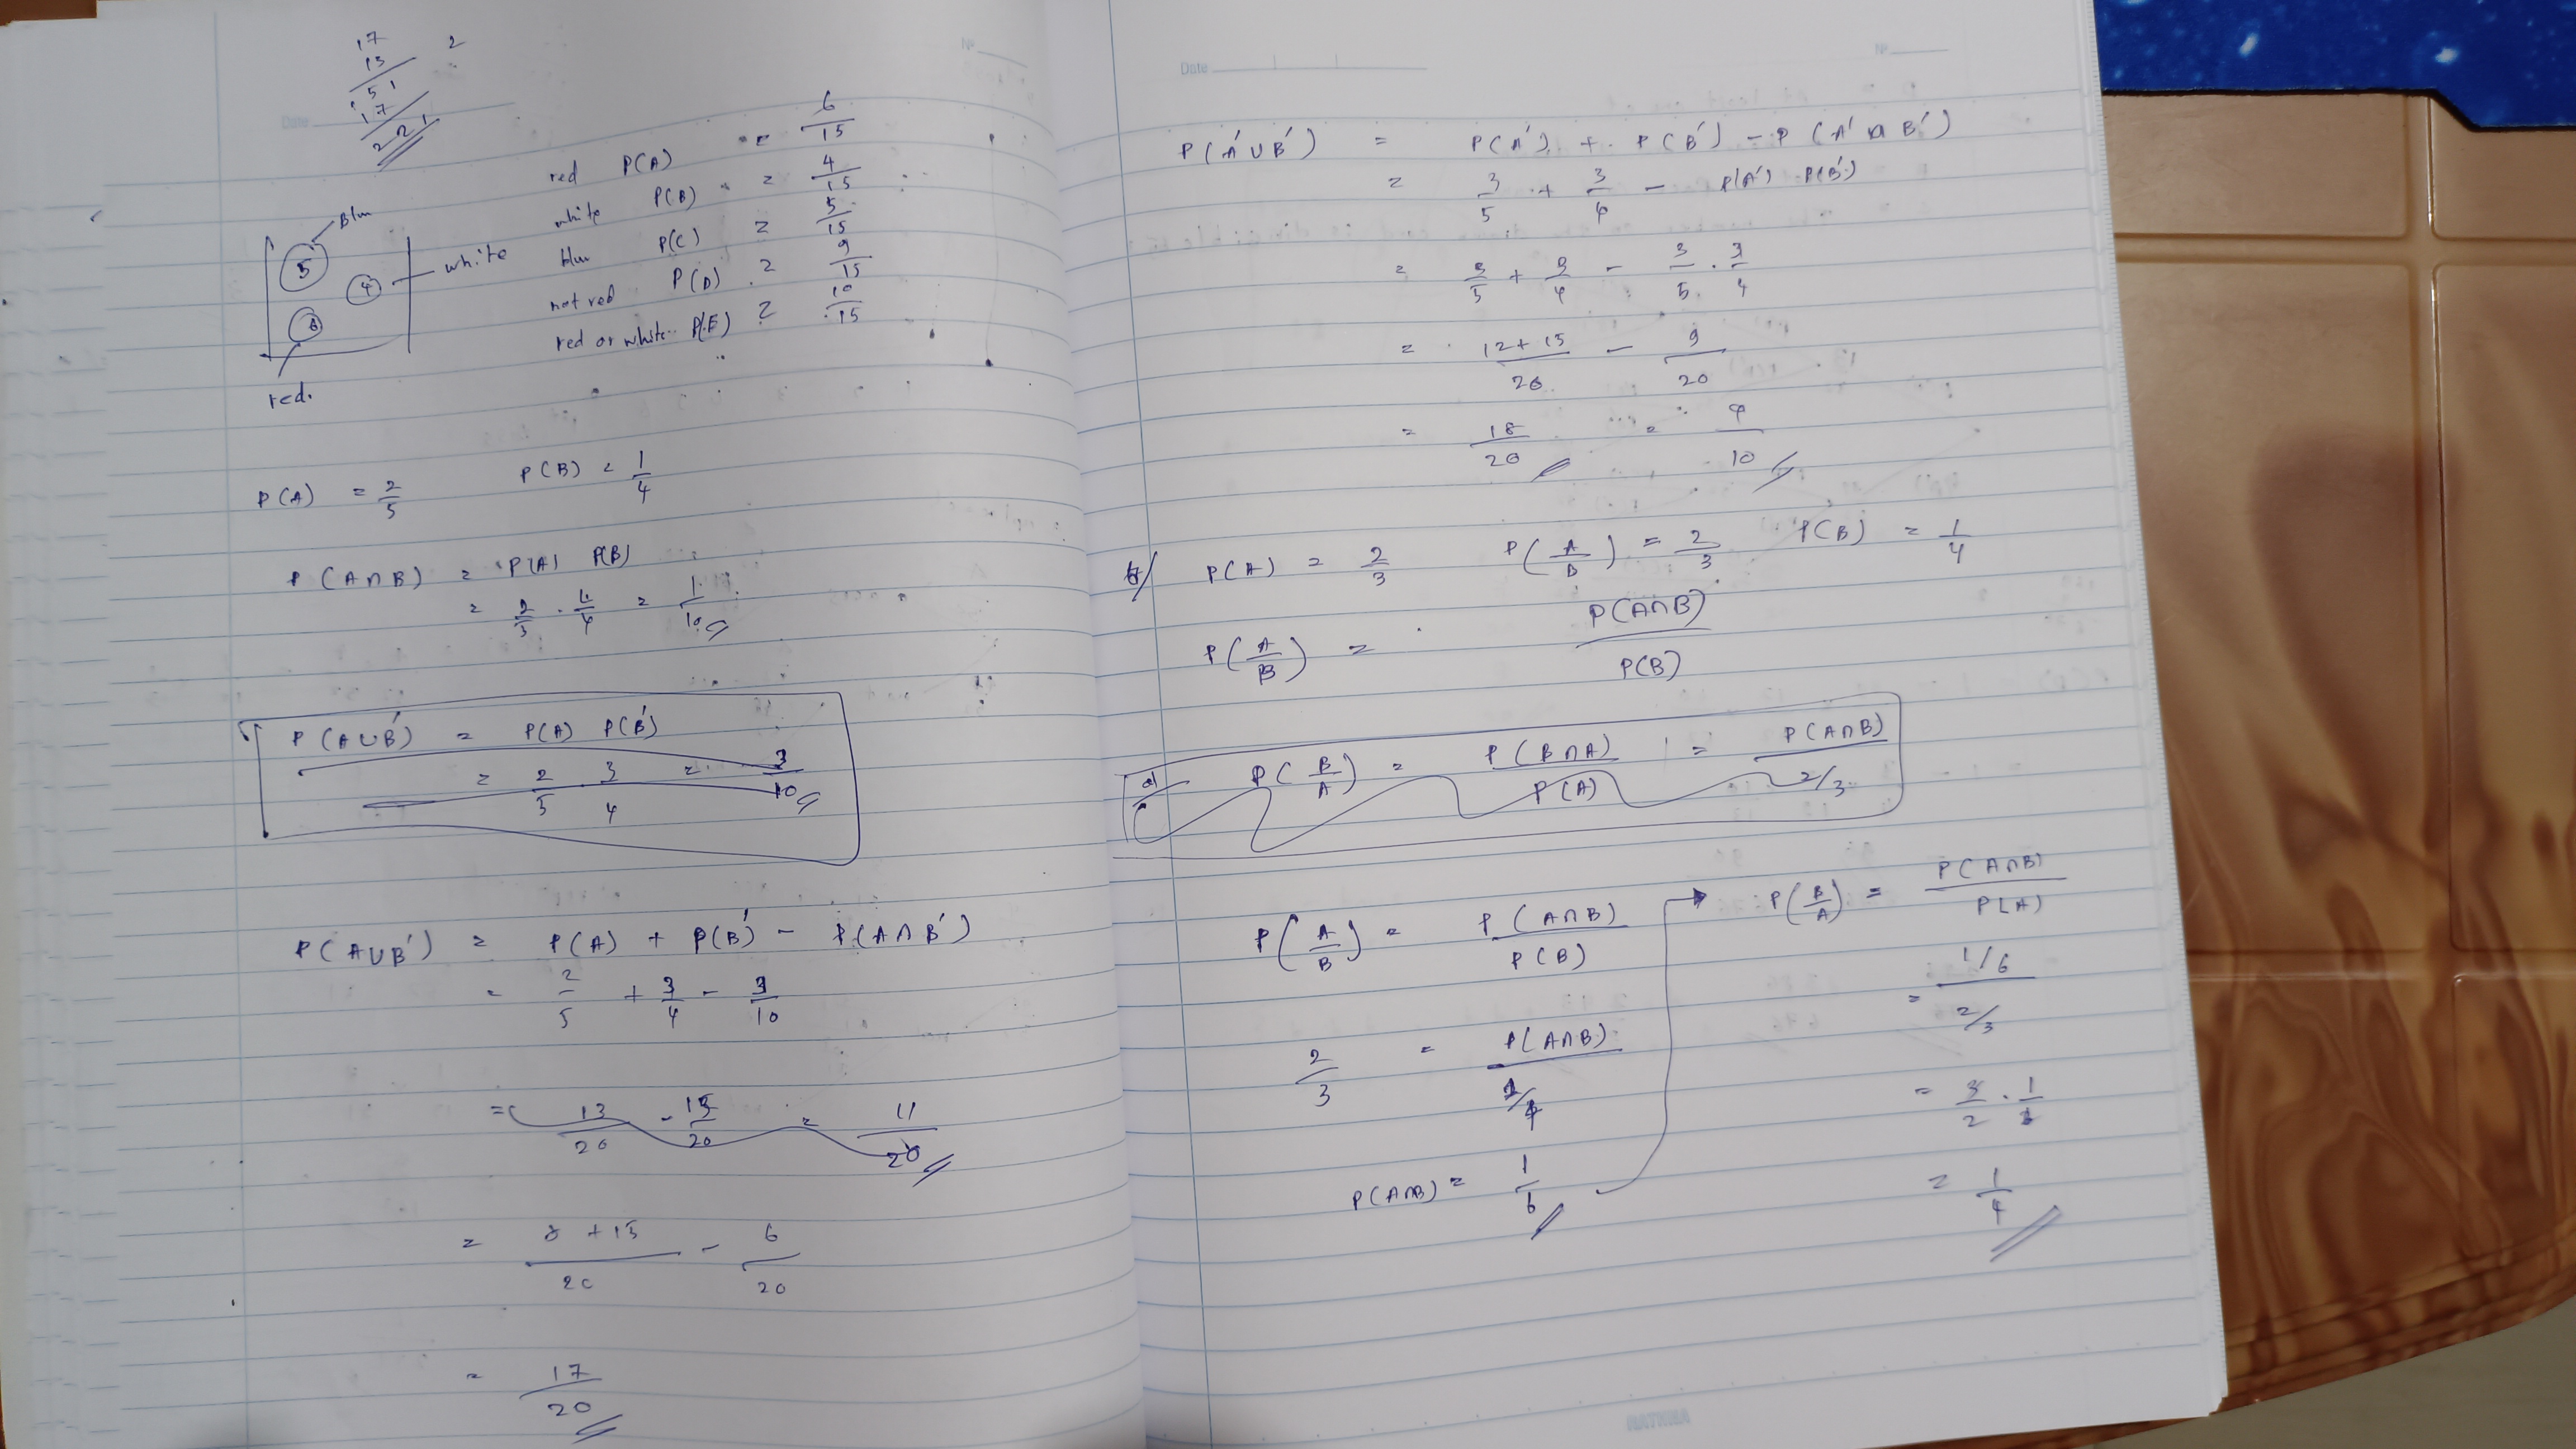 17
13
51
17
221
2
Date
No
red P(A) = 6/15
white P(B) = 4/15
blue P(C) = 5/15
not red P(D) = 9/15
red or white P(E) = 10/15
Blue
5
4
white
6
red.
P(A) = 2/5 P(B) = 1/4
P(A∩B) = P(A) P(B)
= 2/5 · 1/4 = 1/10
P(A∪B′) = P(A) P(B′)
= 2/5 3/4 = 3/10
P(A∪B′) = P(A) + P(B′) - P(A∩B′)
= 2/5 + 3/4 - 3/10
= 13/20 - 15/20 = 11/20
= 8+15/20 - 6/20
= 17/20
Date
No
P(A′∪B′) = P(A′) + P(B′) - P(A′∩B′)
= 3/5 + 3/4 - P(A′) P(B′)
= 3/5 + 3/4 - 3/5 · 3/4
= 12+15/20 - 9/20
= 18/20 = 9/10
P(A) = 2/3 P(A/B) = 2/3 P(B) = 1/4
P(A/B) = P(A∩B)/P(B)
a) P(B/A) = P(B∩A)/P(A) = P(A∩B)/2/3
P(A/B) = P(A∩B)/P(B)
2/3 = P(A∩B)/1/4
P(A∩B) = 1/6
P(B/A) = P(A∩B)/P(A)
= 1/6/2/3
= 3/2 · 1/6
= 1/4
RATHNA